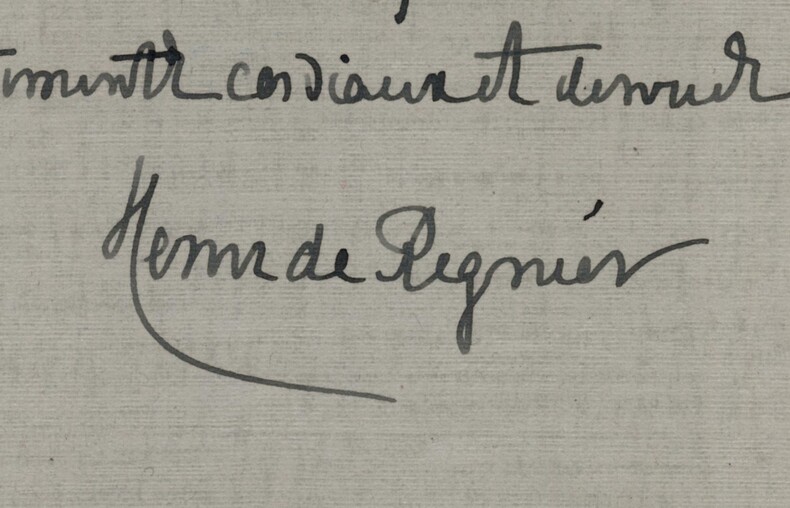 timents cordiaux et devoués
Henri de Régnier